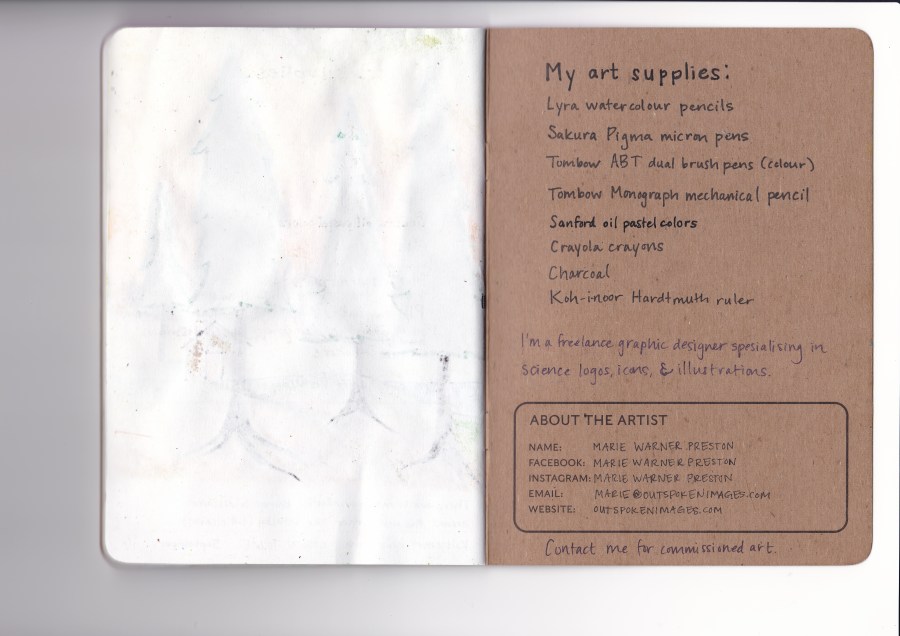 My art supplies:
Lyra watercolour pencils
Sakura Pigma micron pens
Tombow ABT dual brush pens (colour)
Tombow Monograph mechanical pencil
Sanford oil pastel colors
Crayola crayons
Charcoal
Koh-inoor Hardtmuth ruler
I'm a freelance graphic designer spesialising in
science logos, icons, & illustrations.
ABOUT THE ARTIST
NAME: MARIE WARNER PRESTON
FACEBOOK: MARIE WARNER PRESTON
INSTAGRAM: MARIE WARNER PRESTON
EMAIL: MARIE@OUTSPOKENIMAGES.COM
WEBSITE: OUTSPOKENIMAGES.COM
Contact me for commissioned art.